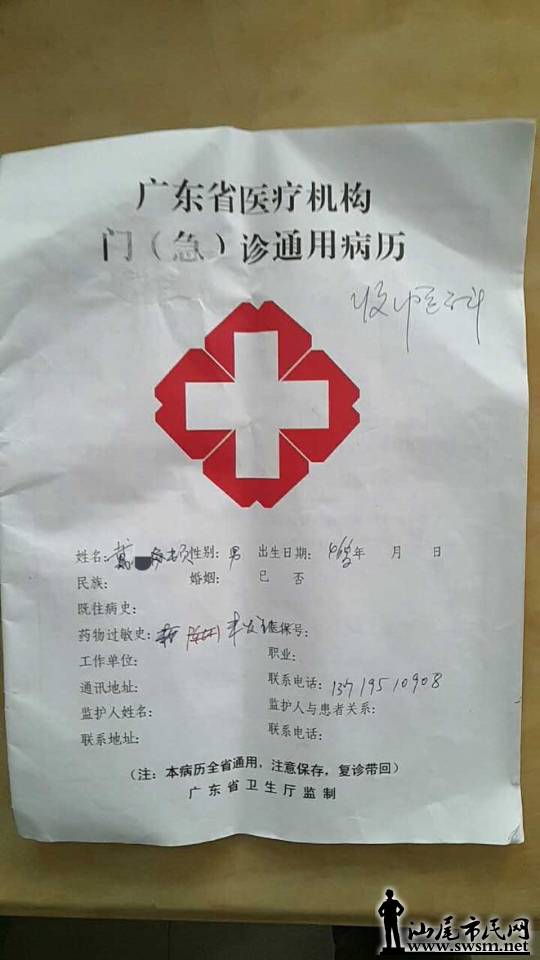 广东省医疗机构
门（急）诊通用病历
姓名： 性别：男 出生日期： 年 月 日
民族： 婚姻： 已 否
既往病史：
药物过敏史： 保号：
工作单位： 职业：
通讯地址： 联系电话：13719510908
监护人姓名： 监护人与患者关系：
联系地址： 联系电话：
（注：本病历全省通用，注意保存，复诊带回）
广东省卫生厅监制
汕尾市民网
www.swsm.net